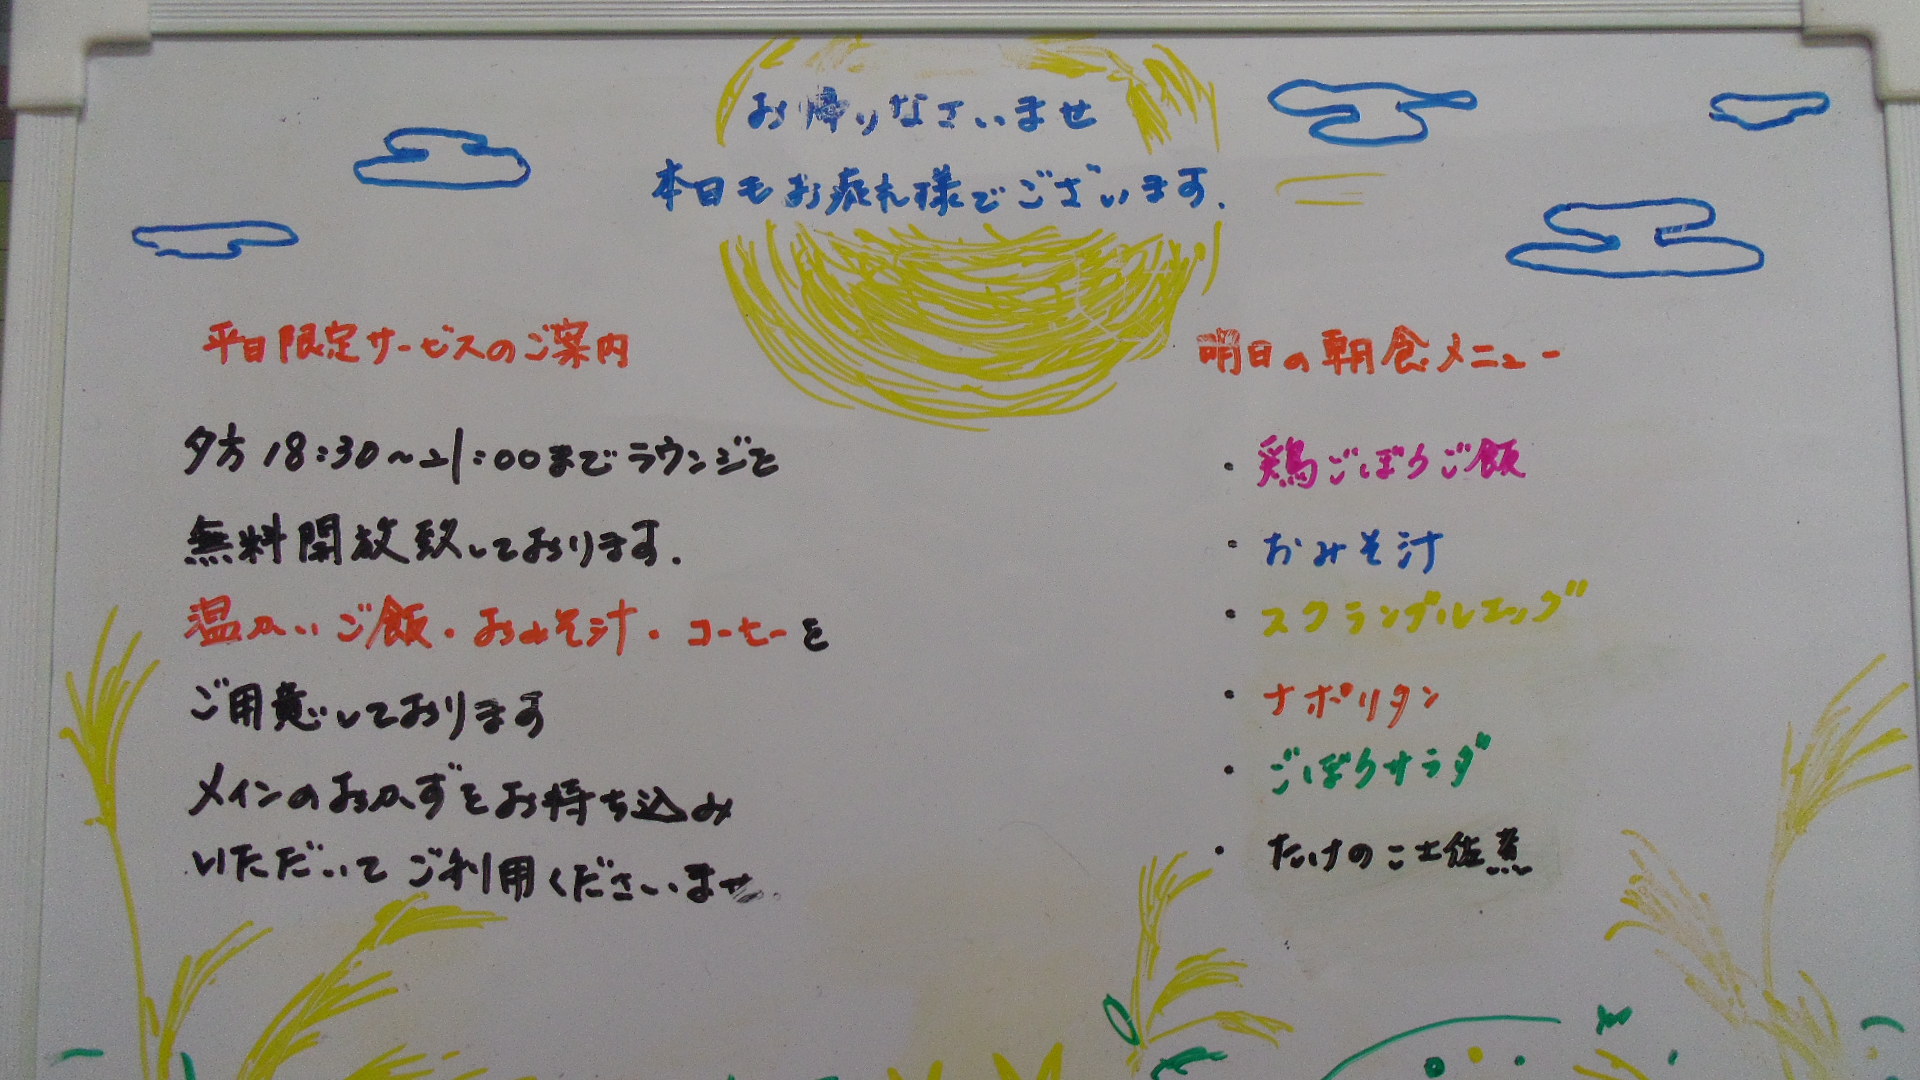 お帰りなさいませ
本日もお疲れ様でございます.
平日限定サービスのご案内
夕方18:30~21:00までラウンジを
無料開放致しております.
温かいご飯・おみそ汁・コーヒーを
ご用意しております
メインのおかずをお持ち込み
いただいてご利用くださいませ.
明日の朝食メニュー
・鶏ごぼうご飯
・おみそ汁
・スクランブルエッグ
・ナポリタン
・ごぼうサラダ
・たけのこ土佐煮